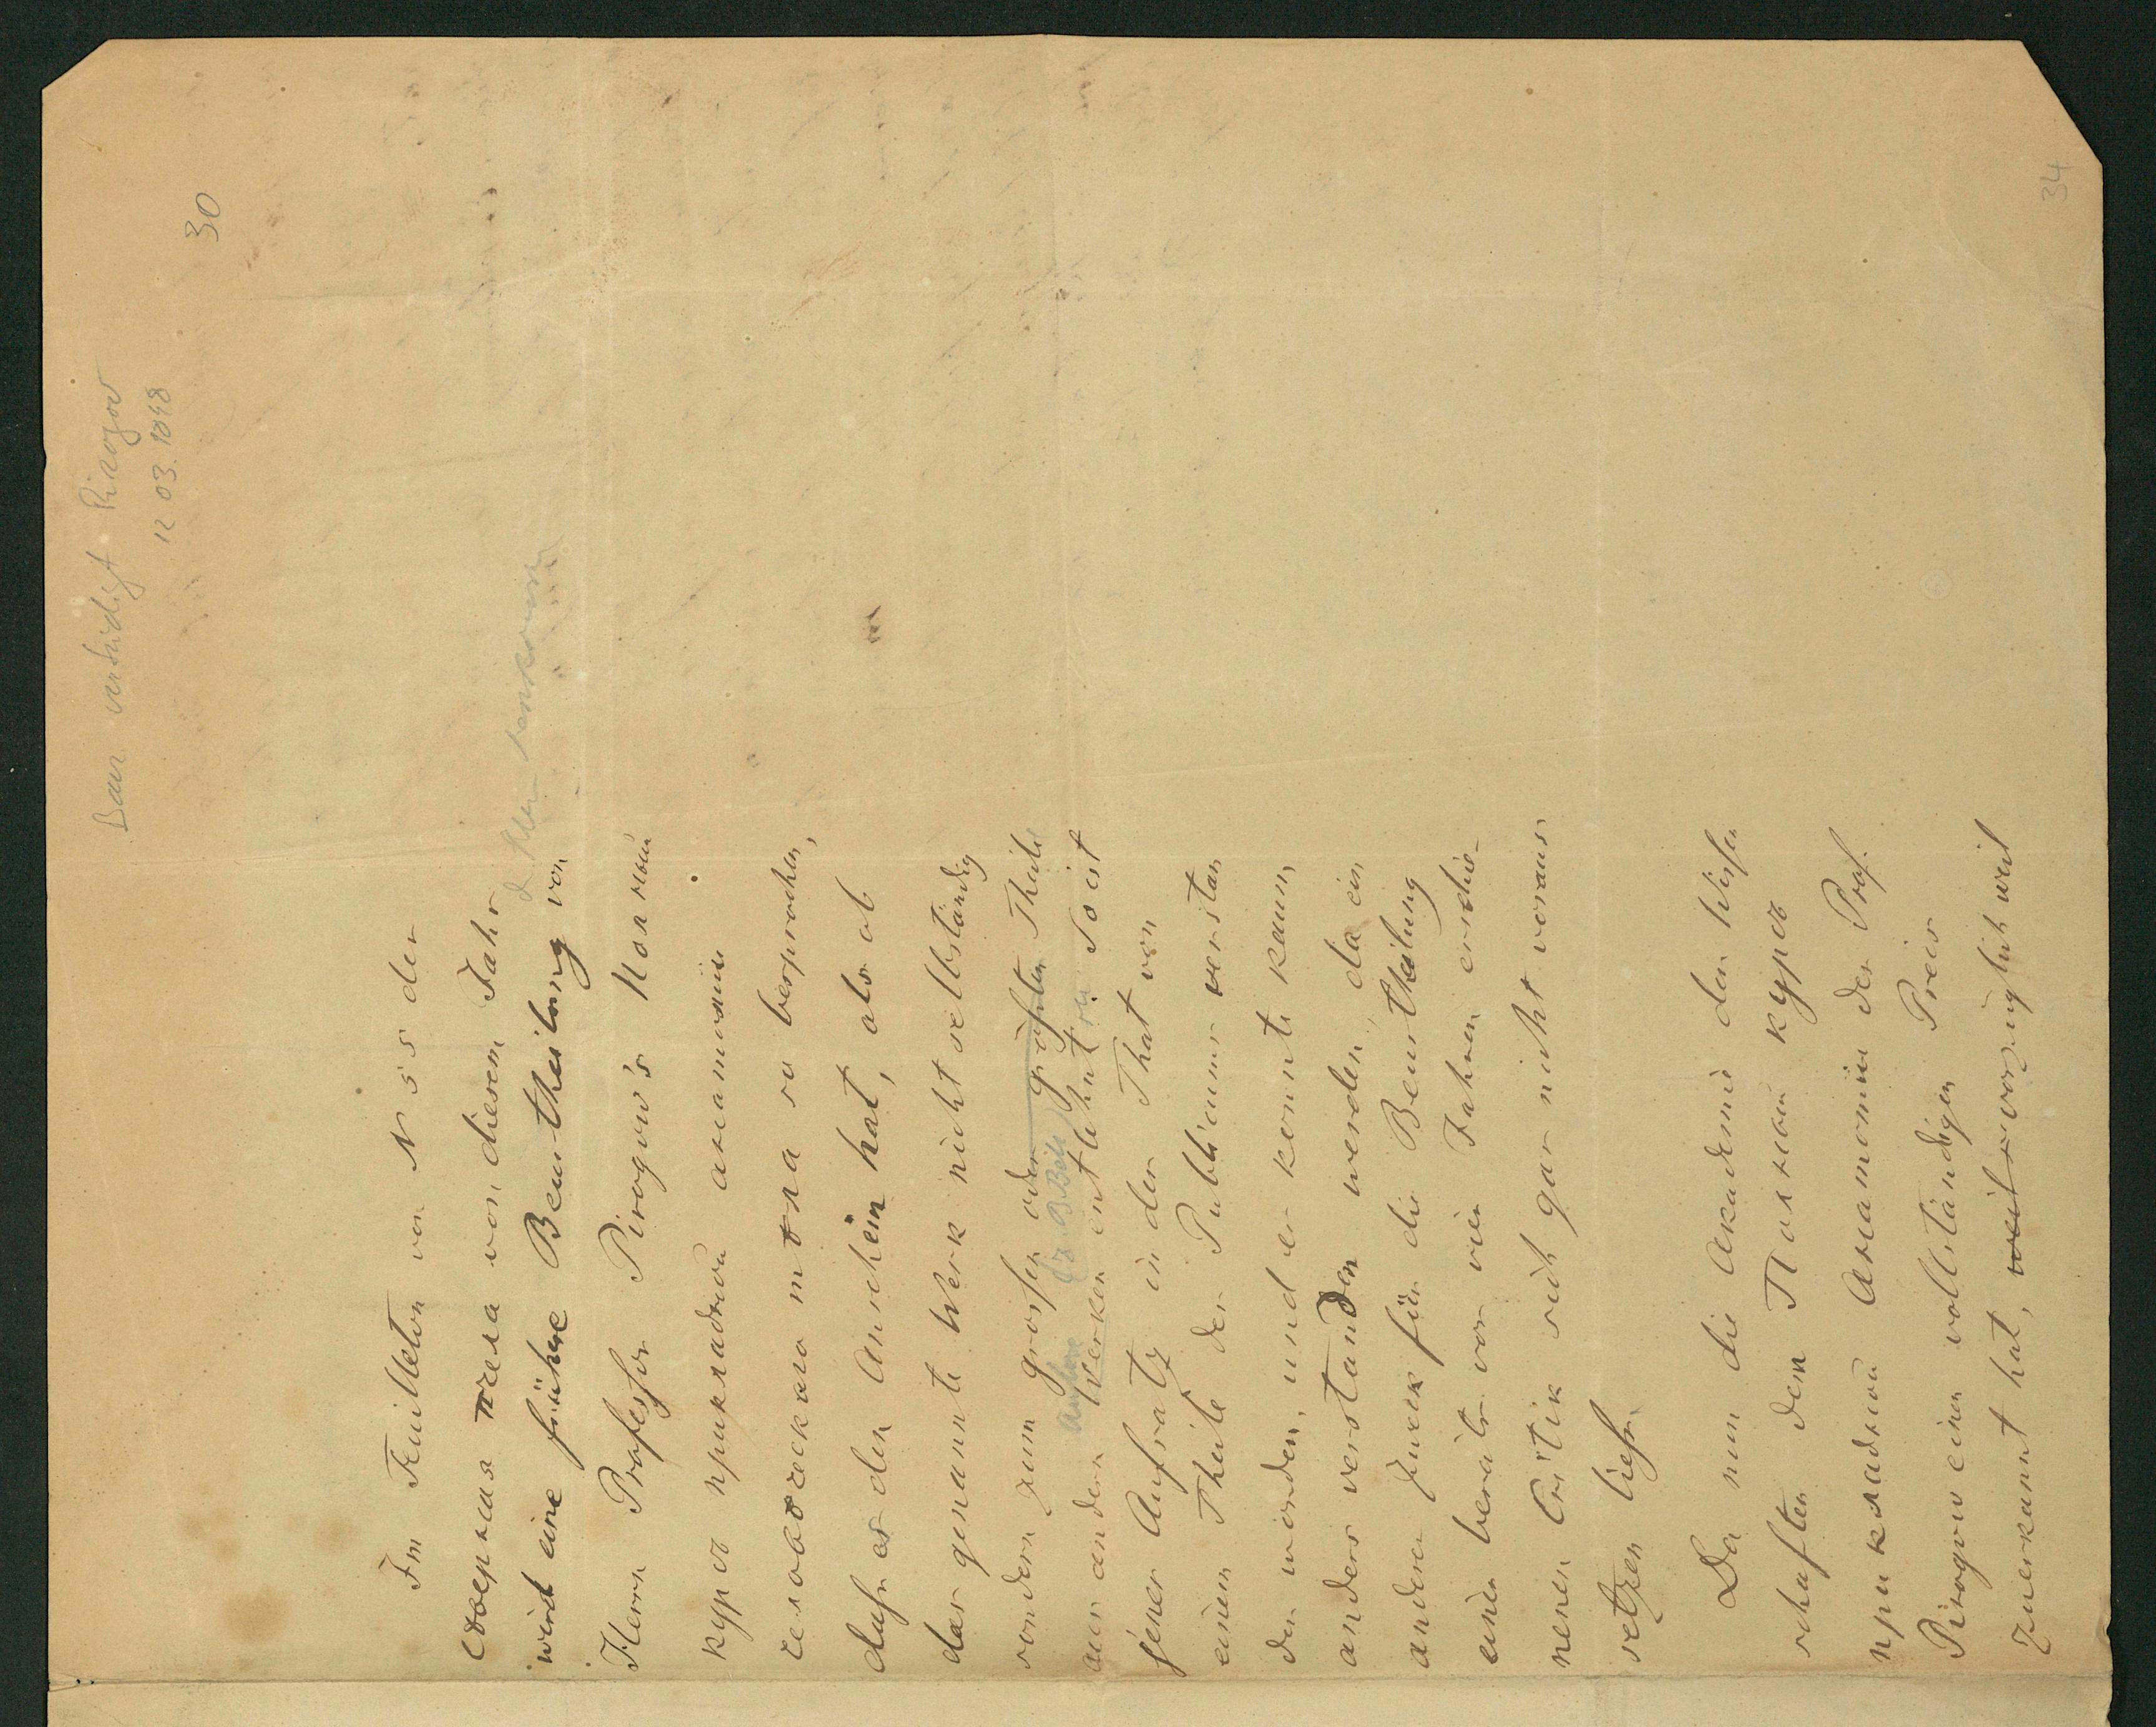 Baer verteidigt Pirogov
12.03.1848
30
Im Feuilleton von N 55 der
Сѣверная пчела von diesem Jahr
wird eine frühere Beurtheilung von
Herrn Professor Pirogow's Полный
курсъ прикладной анатоміи
человѣческаго тѣла so besprochen,
dass es den Anschein hat, als ob
das genannte Werk nicht selbständig
sondern zum grossen oder größten Theile
aus andern Werken entlehnt sei. So ist
jener Aufsatz in der That von
einem Theile des Publicums verstan
den worden, und er konnte kaum
anders verstanden werden, da ein
anderer Zweck für die Beurtheilung
einer bereits vor vier Jahren erschie-
nenen Critik sich gar nicht voraus
setzen liess.
Da nun die Akademie der Wissen
schaften dem Полный курсъ
прикладной Анатоміи des Prof.
Pirogow einen vollständigen Preis
zuerkannt hat, weil vorzüglich weil
34